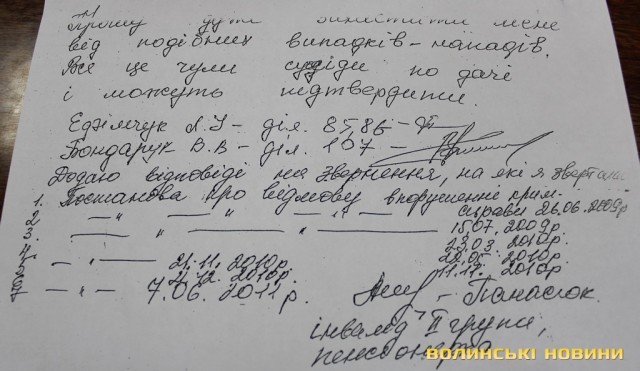 Прошу дуже захистити мене
від подібних випадків - нападів.
Все це чули сусіди по дачі
і можуть підтвердити.
Єфімчук Л.І - діл. 85,86 -
Бондарук В.В - діл. 107 -
Додаю відповіді на звернення, на які я звертала
1. Постанова про відмову в порушенні крим-
справи 26.06.2009р
2. — " — — " —
15.07.2009р.
3. — " — — " —
23.03.2010р.
4.
22.05.2010р.
11.11.2010р.
5 — " — 21.11.2010р.
2.12.2010р.
7 — " — 7.06.2011р.
- Панасюк.
інвалід ІІ групи,
пенсіонерка
ВОЛИНСЬКІ НОВИНИ